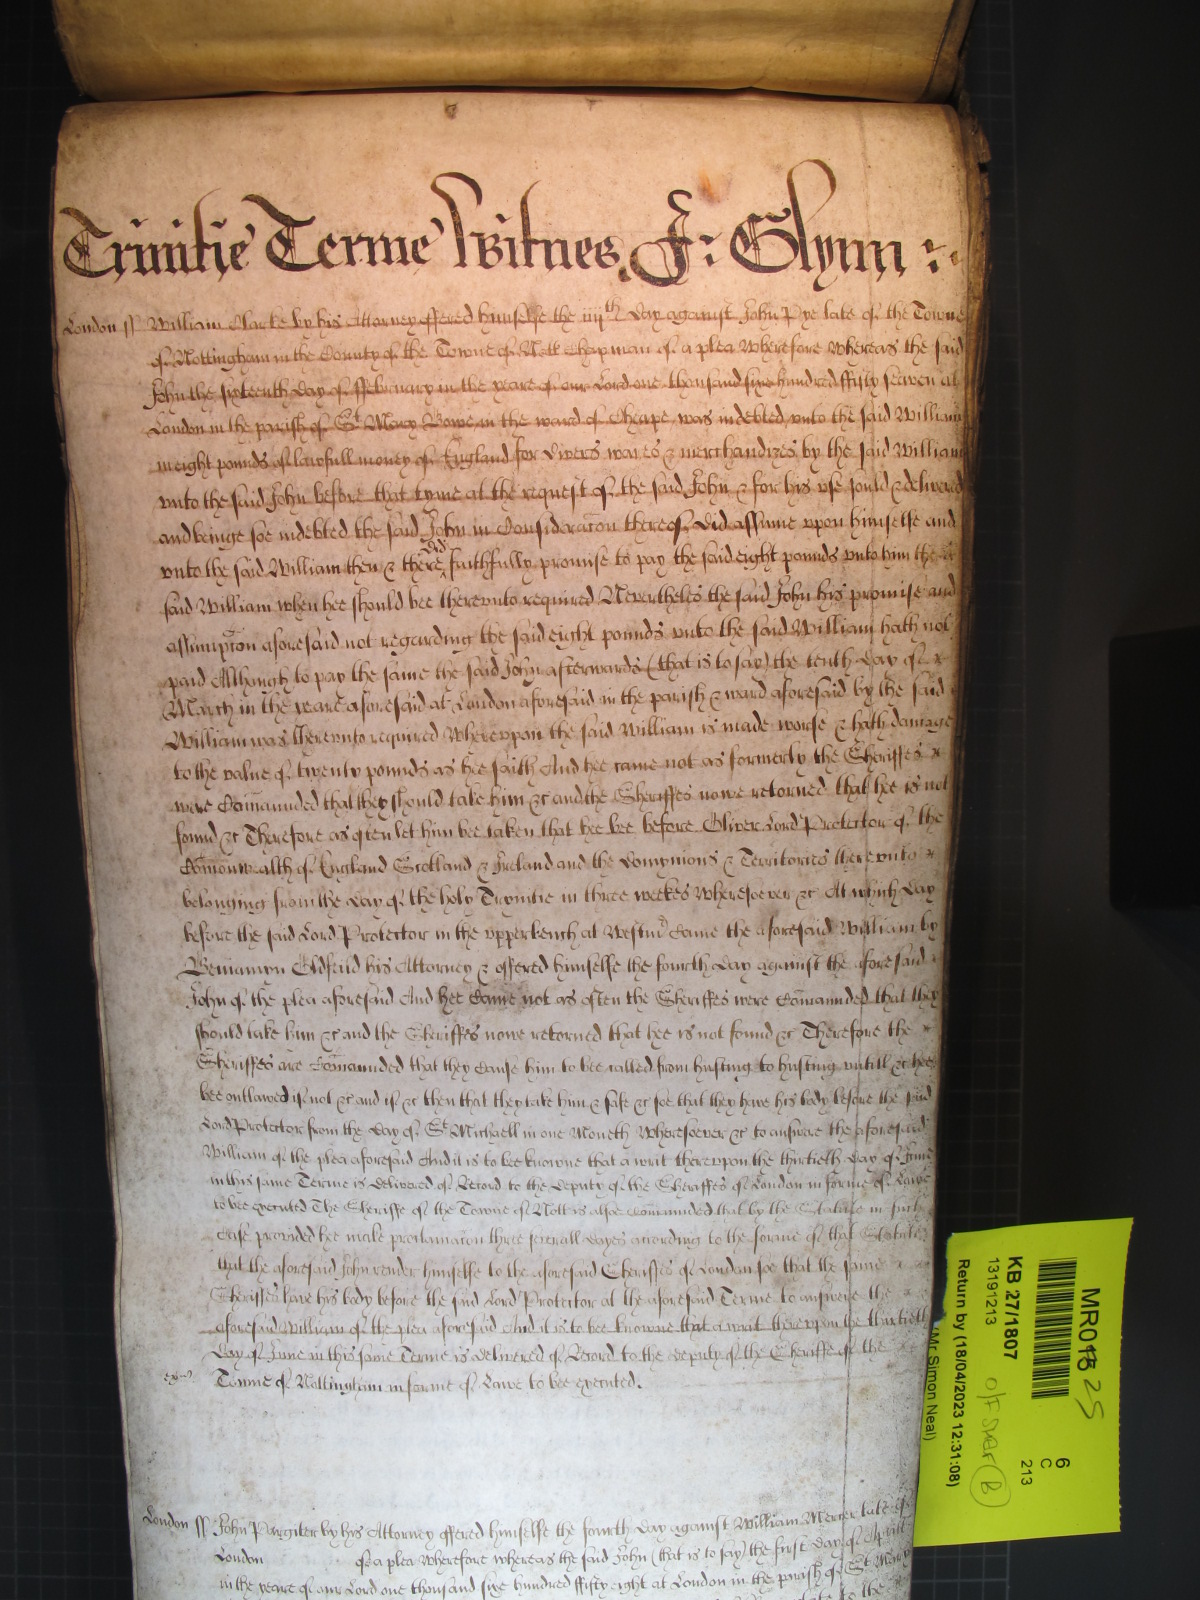 Trinitie Terme Witnes J: Glynn :
London ss William Clarke by his Attorney offered himselfe the iiijth day against John Pye late of the Towne
of Nottingham in the County of the Towne of Nott Chapman of a plea Wherefore whereas the said
John the sixteenth day of ffebruary in the yeare of our Lord one thousand sixe hundred ffifty seaven at
London in the parish of St Mary Bowe in the ward of Cheape was indebted unto the said William
in eight pounds of lawfull money of England for divers wares & merchandizes by the said William
unto the said John before that tyme at the request of the said John & for his use sould & delivered
and beinge soe indebted the said John in Consideracon thereof did assume upon himselfe and
unto the said William then & there did faithfully promise to pay the said eight pounds unto him the
said William when hee should bee thereunto required Nevertheles the said John his promise and
assumpcon aforesaid not regarding the said eight pounds unto the said William hath not
paid Although to pay the same the said John afterwards (that is to say) the tenth day of
March in the yeare aforesaid at London aforesaid in the parish & ward aforesaid by the said
William was thereunto required Whereupon the said William is made worse & hath damage
to the value of twenty pounds as hee saith And hee came not as formerly the Sheriffes
were Comaunded that they should take him &c and the Sheriffes nowe retorned that hee is not
found &c Therefore as often let him bee taken that hee bee before Oliver Lord Protector of the
Comonwealth of England Scotland & Ireland and the Domynions & Territories thereunto
belonging from the day of the holy Trynitie in three weekes Wheresoever &c At which day
before the said Lord Protector in the upperbench at Westmr Came the aforesaid William by
Beniamyn Oldfeild his Attorney & offered himselfe the fourth day against the aforesaid
John of the plea aforesaid And hee Came not as often the Sheriffes were Comaunded that they
should take him &c and the Sheriffes nowe retorned that hee is not found &c Therefore the
Sheriffes are Comaunded that they Cause him to bee called from husting to husting untill &c hee
bee outlawed if not &c and if &c then that they take him & safe &c soe that they have his body before the said
Lord Protector from the day of St Michaell in one Moneth Wheresoever &c to answere the aforesaid
William of the plea aforesaid And it is to bee knowne that a writ thereupon the thirtieth day of June
in this same Terme is delivered of Record to the deputy of the Sheriffes of London in forme of Lawe
to bee executed The Sheriffe of the Towne of Nott is alsoe Comaunded that by the Statute in such
Case provided hee make proclamacon three severall dayes according to the forme of that Statute
that the aforesaid John render himselfe to the aforesaid Sheriffes of London soe that the same
Sheriffes have his body before the said Lord Protector at the aforesaid Terme to answere the
aforesaid William of the plea aforesaid And it is to bee knowne that a writ thereupon the thirtieth
day of June in this same Terme is delivered of Record to the deputy of the Sheriffe of the
Towne of Nottingham in forme of Lawe to bee executed.
London ss John Pargiter by his Attorney offered himselfe the fourth day against William Mercer late of
London of a plea Wherefore whereas the said John (that is to say) the first day of Aprill
in the yeare of our Lord one thousand sixe hundred ffifty eight at London in the parish of St Mary
MR013 25
6
C
213
KB 27/1807
13191213
o/f Sher (B)
Return by (18/04/2023 12:31:08)
(Mr Simon Neal)